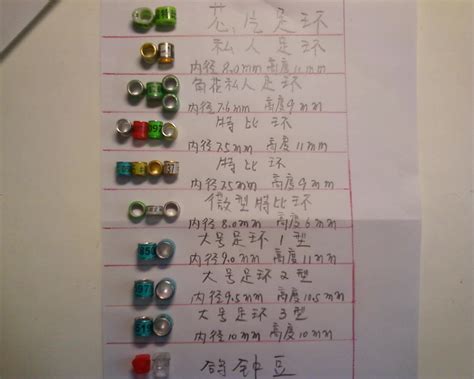 花片足环
私人足环
内径8.0mm 高度11mm
角花私人足环
内径7.6mm 高度9mm
特比环
内径7.5mm 高度11mm
特比环
内径7.5mm 高度9mm
微型特比环
内径8.0mm 高度6mm
大号足环1型
内径9.0mm 高度11mm
大号足环2型
内径9.5mm 高度10.5mm
大号足环3型
内径10mm 高度10mm
鸽钟豆